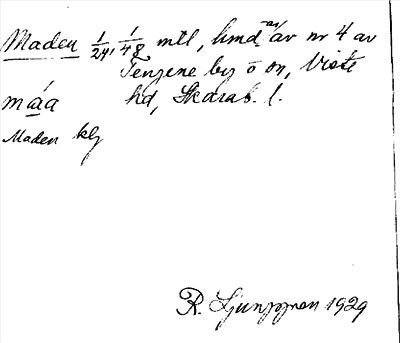 Maden 1/24, 1/48 mtl, hmd. av av nr 4 av
Tengene by o sn, Viste
máa hd, Skarab. l.
Maden klg
R. Ljunggren 1929